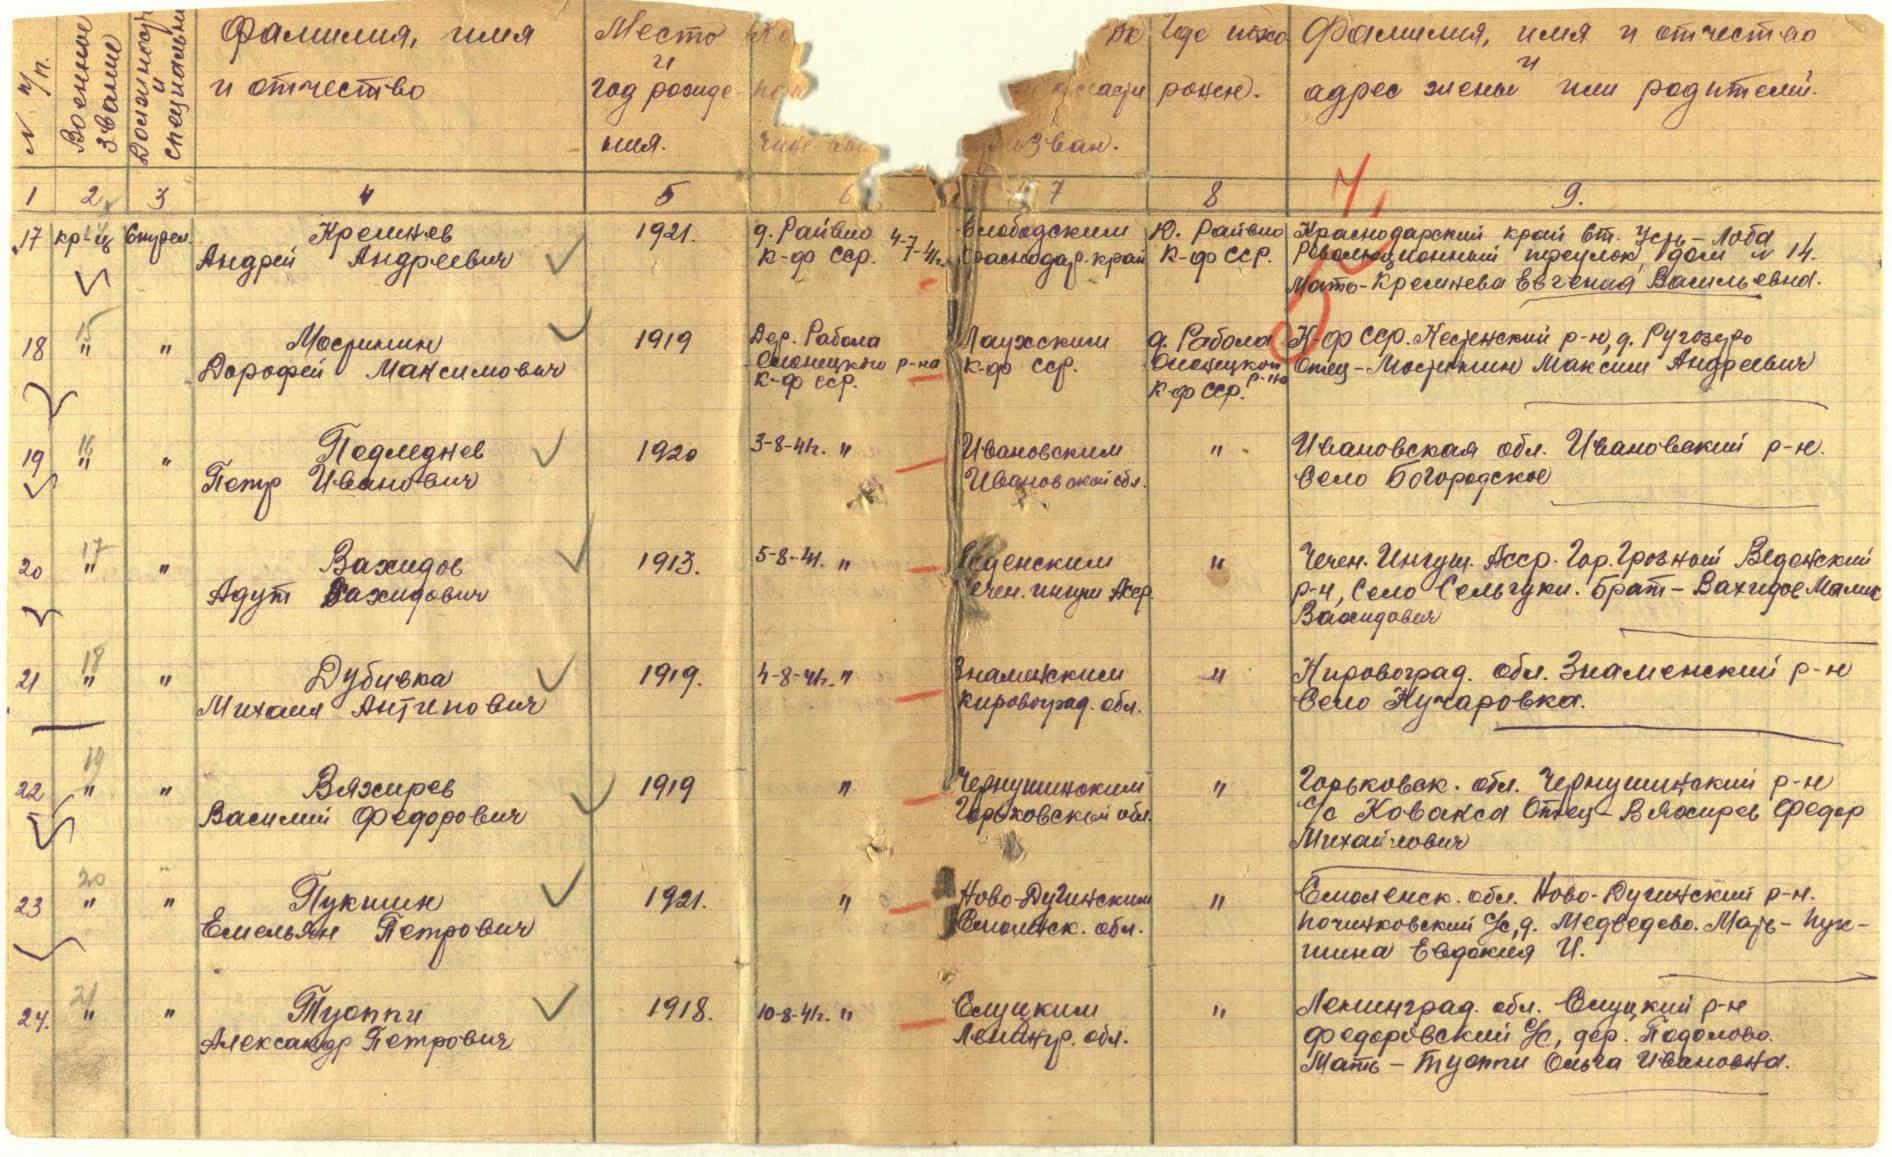 N п/п.
Военное звание
Должность и специальн
Фамилия, имя и отчество
Место и год рождения.
Где похоронен.
Фамилия, имя и отчество и адрес жены или родителей.
1 2 3 4 5 6 7 8 9.
17 кр-ц Кремнев 1921. д. Райвио 4-7-41г. Слободским Ю. Райвио Краснодарский край ст. Усть-Лоба
Андрей Андреевич К-ф ССР. Краснодар. край К-ф ССР. Революционный переулок, дом N 14.
Мать-Кремнева Евгения Васильевна.
15
18 " " Мостинин 1919 Дер. Рабола Лоухским д. Рабола К-ф ССР. Кестенский р-н, д. Ругозеро
Дорофей Максимович Олонецкого р-на К-ф ССР. Олонецкого р-на Отец-Мостинин Максим Андреевич
К-ф ССР. К-ф ССР.
16
19 " " Подледнев 1920 3-8-41г. " Ивановским " Ивановская обл. Ивановский р-н.
Петр Иванович Ивановской обл. Село Богородское
17
20 " " Вахидов 1913. 5-8-41. " Веденским " Чечен. Ингуш. Асср. Гор. Грозный Веденский
Адут Вахидович Чечен. ингуш Асср р-н, Село Сельгуки. Брат-Вахидов Малик
Вахидович
18
21 " " Дубивка 1919. 4-8-41г. " Знаменским " Кировоград. обл. Знаменский р-н
Михаил Антипович Кировоград. обл. Село Кучаровка.
19
22 " " Вяхирев 1919 " Чернушинским " Горьковск. обл. Чернушинский р-н
Василий Федорович Горьковской обл. с/с Ковакса Отец-Вяхирев Федор
Михайлович
20
23 " " Пукшин 1921. " Ново-Дугинским " Смоленск. обл. Ново-Дугинский р-н.
Емельян Петрович Смоленск. обл. Починковский с/с, д. Медведево. Мать-Пук-
шина Евдокия И.
21
24. " " Туоппи 1918. 10-8-41г. " Слуцким " Ленинград. обл. Слуцкий р-н
Александр Петрович Ленингр. обл. Федоровский с/с, дер. Подолово.
Мать-Туоппи Ольга Ивановна.